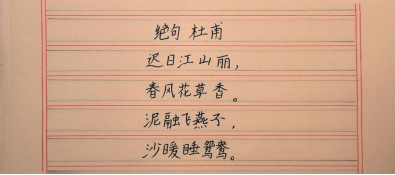 绝句 杜甫
迟日江山丽，
春风花草香。
泥融飞燕子，
沙暖睡鸳鸯。